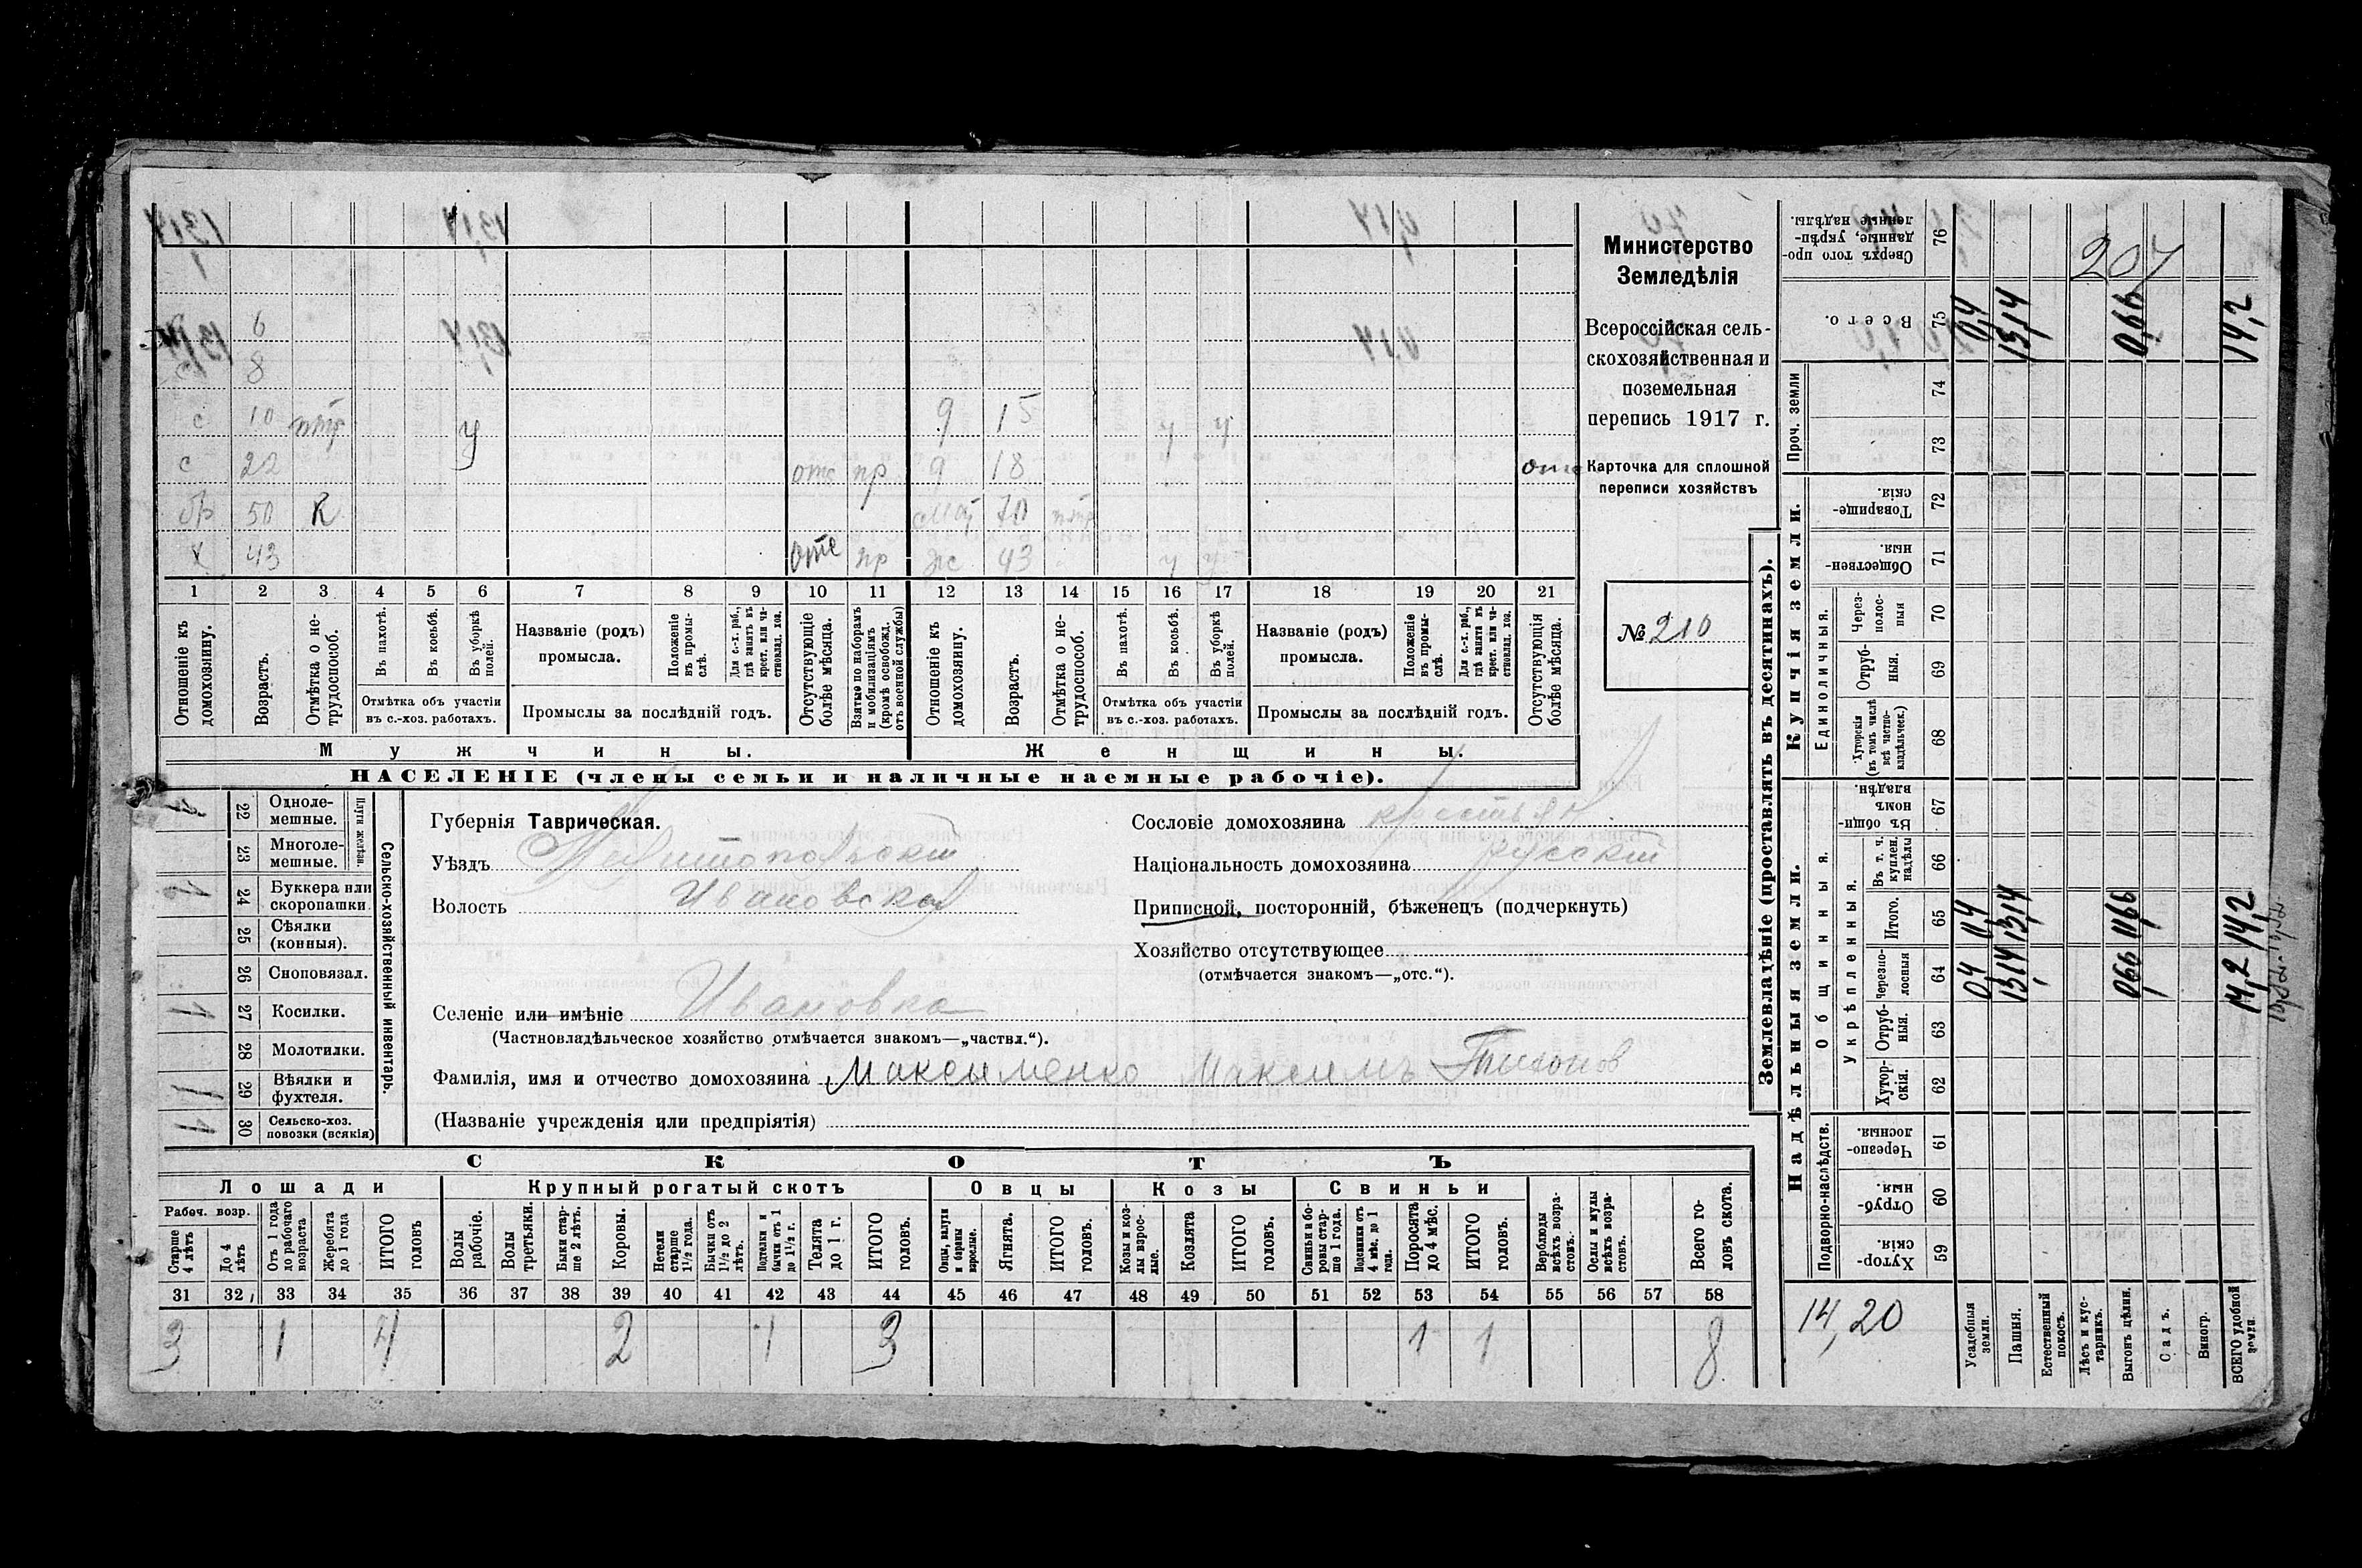 6
8
с 10 У 9 15 у у
с 22 отс пр 9 18
бр 50 К мат 70
х 43 отс пр ж 43 у у
1 2 3 4 5 6 7 8 9 10 11 12 13 14 15 16 17 18 19 20 21
Отношеніе къ домохозяину.
Возрастъ.
Отмѣтка о нетрудоспособ.
Въ пахотѣ.
Въ косьбѣ.
Въ уборкѣ полей.
Отмѣтка объ участіи
въ с.-хоз. работахъ.
Названіе (родъ)
промысла.
Положеніе въ промыслѣ.
Для с.-х. раб., гдѣ занятъ въ крест. или частновлад. хоз.
Промыслы за послѣдній годъ.
Отсутствующіе болѣе мѣсяца.
Взятые по наборамъ и мобилизаціямъ (кромѣ освобожд. отъ военной службы)
Отношеніе къ домохозяину.
Возрастъ.
Отмѣтка о нетрудоспособ.
Въ пахотѣ.
Въ косьбѣ.
Въ уборкѣ полей.
Отмѣтка объ участіи
въ с.-хоз. работахъ.
Названіе (родъ)
промысла.
Положеніе въ промыслѣ.
Для с.-х. раб., гдѣ занята въ крест. или частновлад. хоз.
Промыслы за послѣдній годъ.
Отсутствующія болѣе мѣсяца.
Мужчины. Женщины.
НАСЕЛЕНІЕ (члены семьи и наличные наемные рабочіе).
Министерство
Земледѣлія
Всероссійская сель-
скохозяйственная и
поземельная
перепись 1917 г.
Карточка для сплошной
переписи хозяйствъ
№ 210
Сельско-хозяйственный инвентарь.
Плуги желѣзн.
22 Однолемешные.
23 Многолемешные.
1 24 Буккера или скоропашки
25 Сѣялки (конныя).
26 Сноповязал.
1 27 Косилки.
28 Молотилки.
1 29 Вѣялки и фухтеля.
1 30 Сельско-хоз. повозки (всякія)
Губернія Таврическая.
Уѣздъ Мелитопольскій
Волость Ивановская
Селеніе или имѣніе Ивановка
(Частновладѣльческое хозяйство отмѣчается знакомъ—„частвл.“).
Фамилія, имя и отчество домохозяина Максименко Максимъ Тихонов
(Названіе учрежденія или предпріятія)
Сословіе домохозяина крестьян
Національность домохозяина русскій
Приписной, посторонній, бѣженецъ (подчеркнуть)
Хозяйство отсутствующее
(отмѣчается знакомъ—„отс.“).
СКОТЪ
Лошади Крупный рогатый скотъ Овцы Козы Свиньи
Рабоч. возр.
Старше 4 лѣтъ
До 4 лѣтъ
Отъ 1 года до рабочаго возраста
Жеребята до 1 года
ИТОГО головъ
Волы рабочіе.
Волы третьяки.
Быки старше 2 лѣтъ.
Коровы.
Нетели старше 1½ года.
Бычки отъ 1½ до 2 лѣтъ.
Подтелки и бычки отъ 1 до 1½ г.
Телята до 1 г.
ИТОГО головъ.
Овцы, валухи и бараны взрослые.
Ягнята.
ИТОГО головъ.
Козы и козлы взрослые.
Козлята
ИТОГО головъ.
Свиньи и боровы старше 1 года.
Подсвинки отъ 4 мѣс. до 1 года.
Поросята до 4 мѣс.
ИТОГО головъ.
Верблюды всѣхъ возрастовъ.
Ослы и мулы всѣхъ возрастовъ.
Всего головъ скота.
31 32 33 34 35 36 37 38 39 40 41 42 43 44 45 46 47 48 49 50 51 52 53 54 55 56 57 58
3 1 4 2 1 3 1 1 8
Землевладѣніе (проставлять въ десятинахъ).
Купчія земли.
Надѣльныя земли.
Сверхъ того проданные, укрѣпленные надѣлы. 76
207
Всего. 75 0,4 13,14 0,66 14,2
Проч. земли
74
73
Товарищескія. 72
Общественныя. 71
Единоличныя.
Черезполосныя 70
Отрубныя. 69
Хуторскія (въ томъ числѣ всѣ частновладѣльческ.) 68
Общинныя.
Въ общинномъ владѣн. 67
Укрѣпленныя.
Въ т. ч. куплен. надѣлы 66
Итого. 65 0,4 13,14 0,66 14,2
Черезполосныя 64 0,4 13,14 0,66 14,2
Отрубныя. 63
Хуторскія. 62
Подворно-наслѣдств.
Черезполосныя. 61
Отрубныя. 60
Хуторскія. 59
14,20
Усадебныя земли.
Пашня.
Естественный покосъ.
Лѣсъ и кустарникъ.
Выгонъ цѣлин.
Садъ.
Виногр.
ВСЕГО удобной земли.